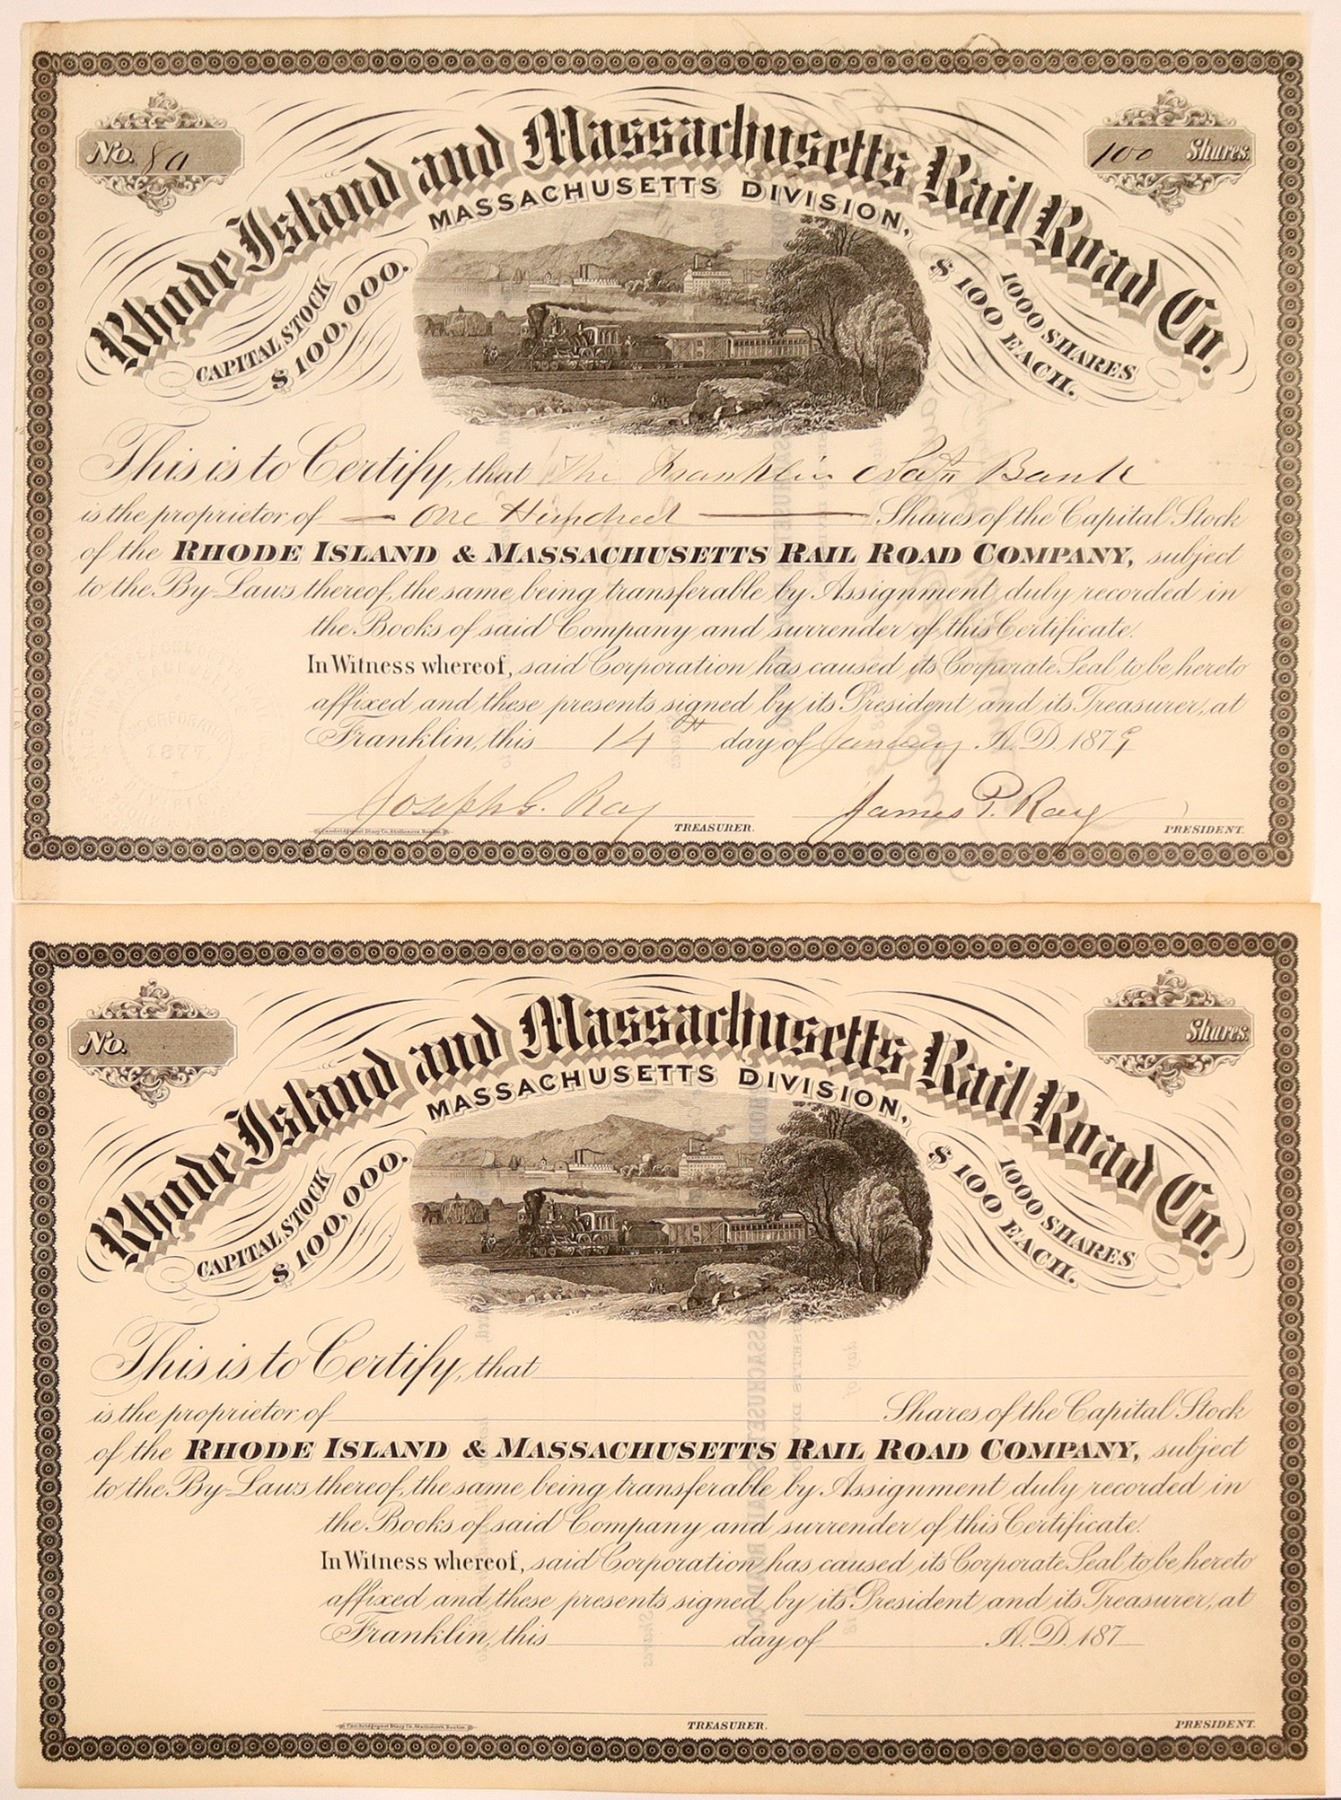 No. 8a
100 Shares.
Rhode Island and Massachusetts Rail Road Co.
MASSACHUSETTS DIVISION,
CAPITAL STOCK
$100,000.
1000 SHARES
$100 EACH.
This is to Certify, that The Franklin Nat'n Bank
is the proprietor of One Hundred Shares of the Capital Stock
of the RHODE ISLAND & MASSACHUSETTS RAIL ROAD COMPANY, subject
to the By-Laws thereof, the same being transferable by Assignment duly recorded in
the Books of said Company and surrender of this Certificate.
In Witness whereof, said Corporation has caused its Corporate Seal to be hereto
affixed and these presents signed by its President and its Treasurer, at
Franklin, this 14th day of January A.D. 1879
INCORPORATED
1877
DIVISION
Joseph G. Ray TREASURER.
James P. Ray PRESIDENT.
No.
Shares.
Rhode Island and Massachusetts Rail Road Co.
MASSACHUSETTS DIVISION,
CAPITAL STOCK
$100,000.
1000 SHARES
$100 EACH.
This is to Certify, that
is the proprietor of Shares of the Capital Stock
of the RHODE ISLAND & MASSACHUSETTS RAIL ROAD COMPANY, subject
to the By-Laws thereof, the same being transferable by Assignment duly recorded in
the Books of said Company and surrender of this Certificate.
In Witness whereof, said Corporation has caused its Corporate Seal to be hereto
affixed and these presents signed by its President and its Treasurer, at
Franklin, this day of A.D. 187
TREASURER.
PRESIDENT.